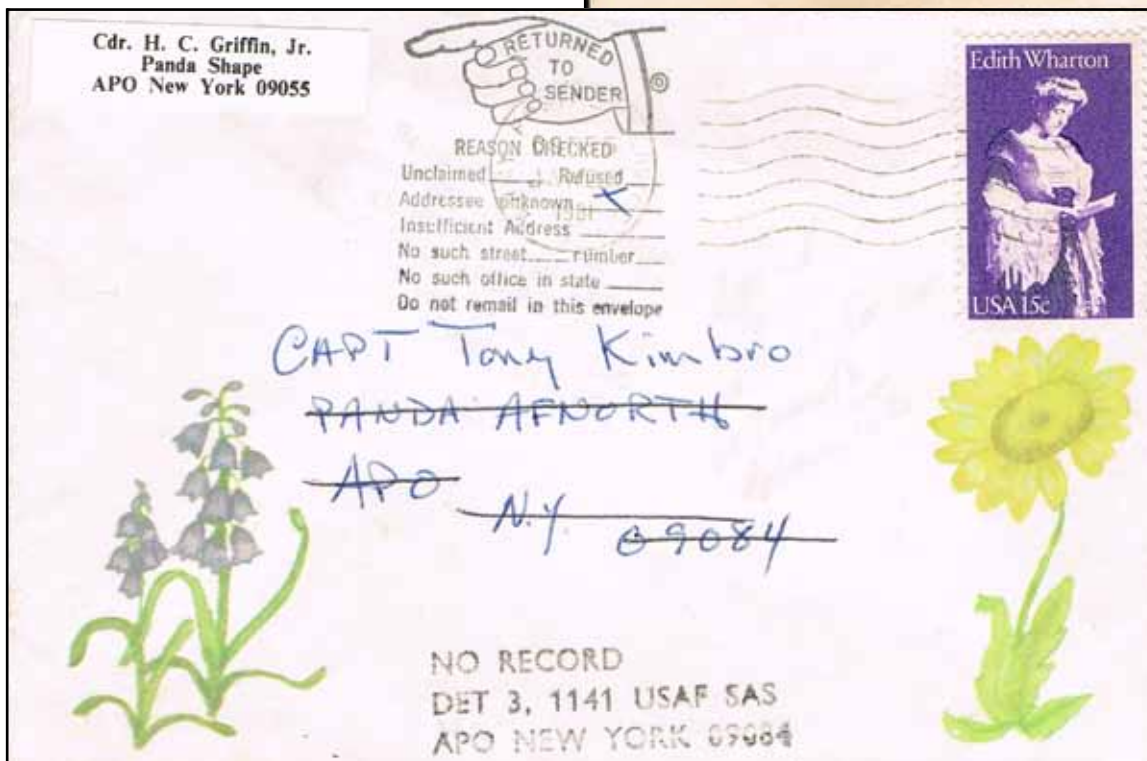 Cdr. H. C. Griffin, Jr.
Panda Shape
APO New York 09055
RETURNED
TO
SENDER
REASON CHECKED
Unclaimed Refused
Addressee unknown
1981
Insufficient Address
No such street number
No such office in state
Do not remail in this envelope
Edith Wharton
USA 15c
CAPT Tony Kimbro
PANDA AFNORTH
APO
N.Y. 09084
NO RECORD
DET 3, 1141 USAF SAS
APO NEW YORK 09084